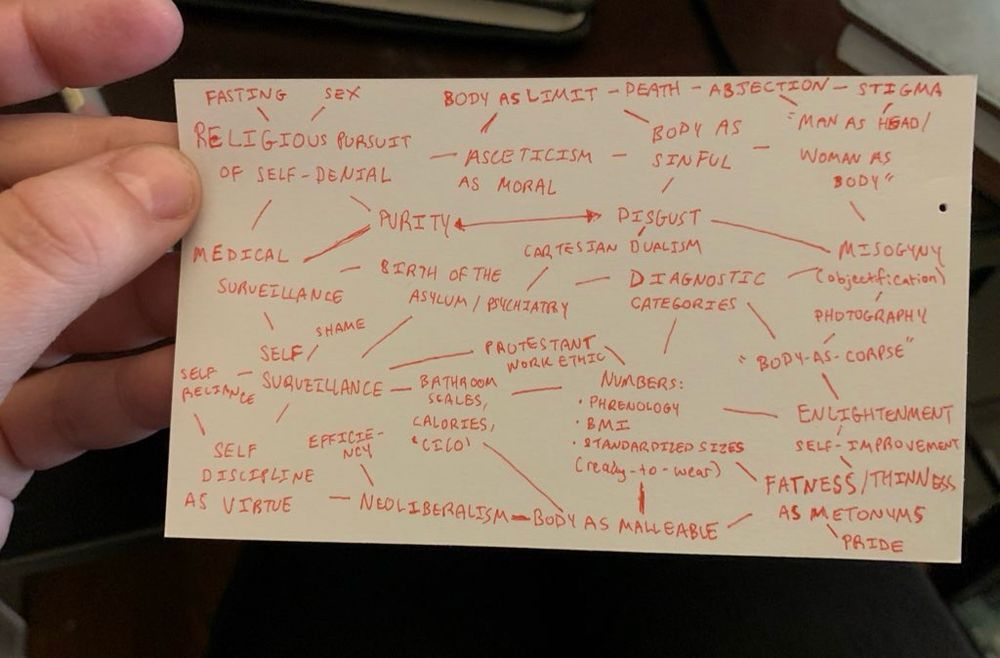 FASTING SEX
BODY AS LIMIT – DEATH – ABJECTION – STIGMA
RELIGIOUS PURSUIT
OF SELF-DENIAL
ASCETICISM
AS MORAL
BODY AS
SINFUL
"MAN AS HEAD/
WOMAN AS
BODY"
PURITY
DISGUST
MEDICAL
SURVEILLANCE
BIRTH OF THE
ASYLUM/PSYCHIATRY
CARTESIAN DUALISM
DIAGNOSTIC
CATEGORIES
MISOGYNY
(objectification)
PHOTOGRAPHY
"BODY-AS-CORPSE"
SHAME
SELF
SURVEILLANCE
SELF
RELIANCE
PROTESTANT
WORK ETHIC
BATHROOM
SCALES,
CALORIES,
'CICO'
NUMBERS:
• PHRENOLOGY
• BMI
• STANDARDIZED SIZES
(ready-to-wear)
ENLIGHTENMENT
SELF-IMPROVEMENT
SELF
DISCIPLINE
AS VIRTUE
EFFICIE-
NCY
FATNESS/THINNESS
AS METONYMS
NEOLIBERALISM – BODY AS MALLEABLE
PRIDE